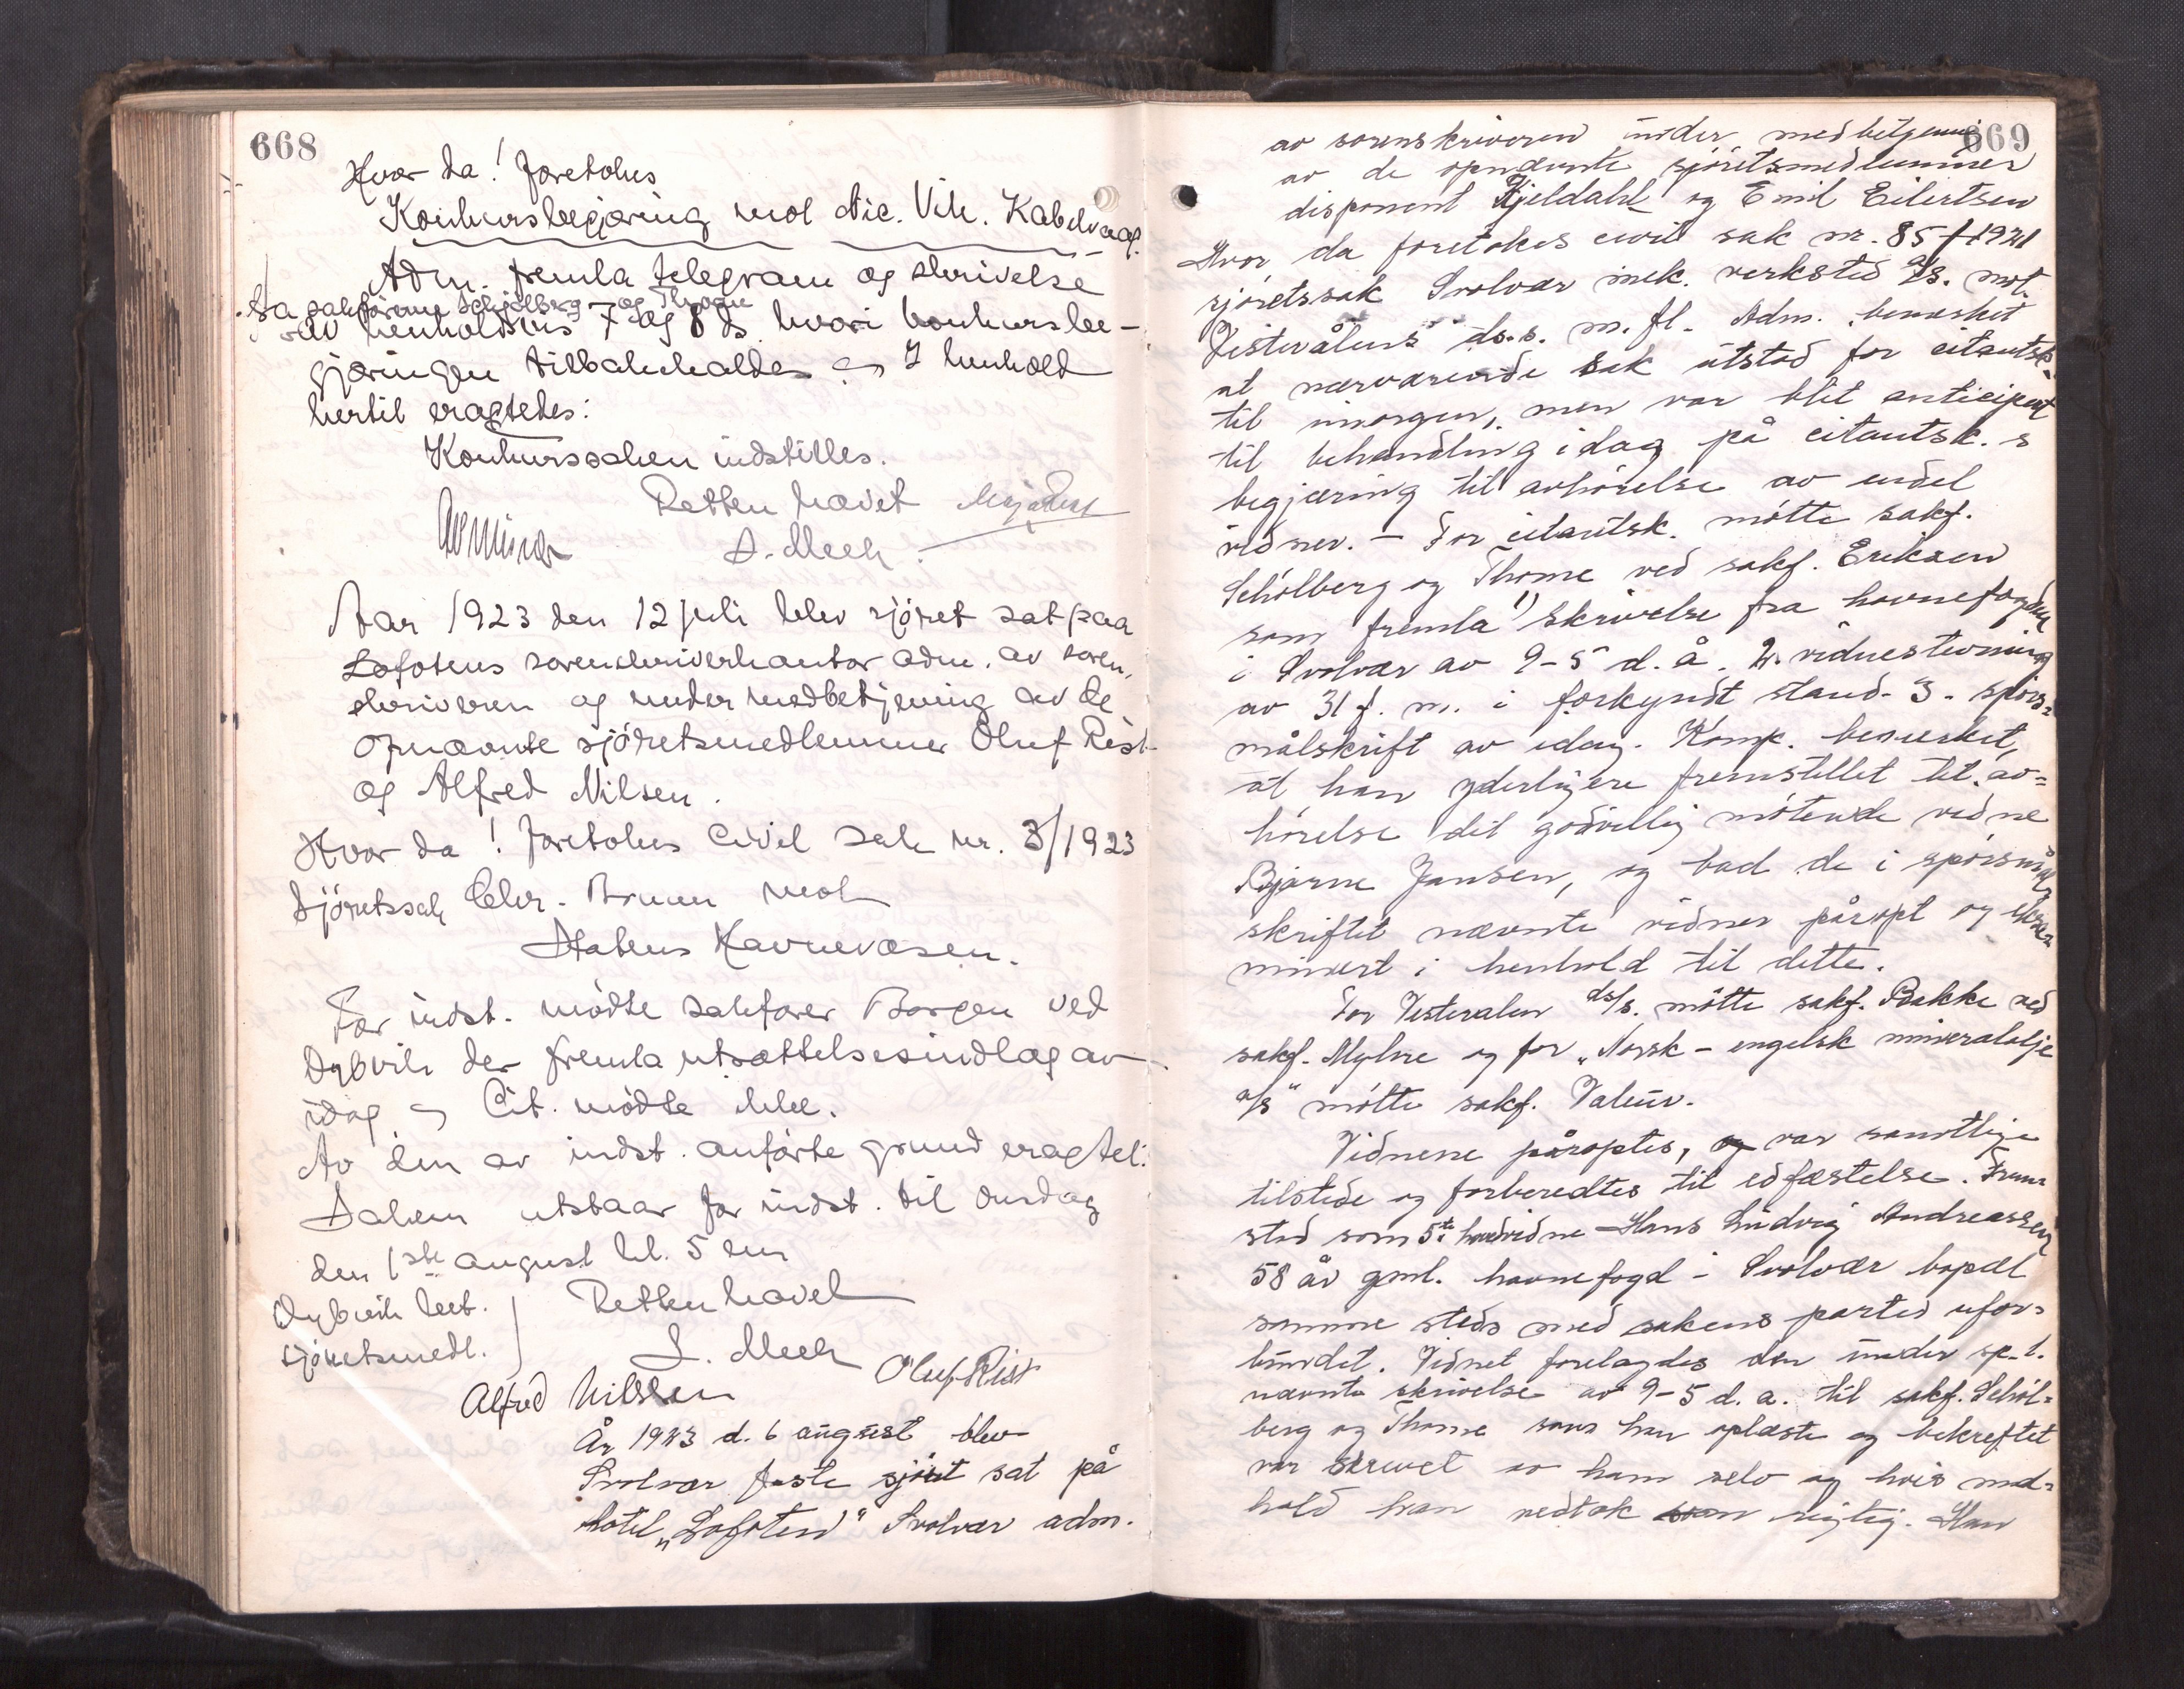 668
Hvor da! foretokes
Konkursbegjæring mot Nic. Vik. Kabelvaag.
Adm. fremla telegram og skrivelse
fra sakförerne Schjølberg og Thrane
av henholdsvis 7 og 8 ds hvori konkursbe-
gjæringen tilbakekaldes I henhold
hertil eragtedes:
Konkurssaken indstilles.
Retten hævet
L. Meek
Aar 1923 den 12 juli blev sjöret sat paa
Lofotens sorenskriverkontor adm. av soren-
skriveren og under medbetjening av de
opnævnte sjöretsmedlemmer Oluf Rist
og Alfred Nilsen.
Hvor da! foretokes Civil sak nr. 3/1923
Sjöretssak Chr. Bruun mot
Statens Havnevæsen.
For indst. mödte sakfører Borgen ved
Dybvik der fremla utsættelsesindlæg av
idag Cit. mödte ikke.
Av den av indst. anførte grund eragtet:
Saken utstaar for indst. til onsdag
den 1ste august kl. 5 em
Dybvik leet.
sjöretsmedl.
Retten hævet
L. Meek
Oluf Rist
Alfred Nilssen
År 1923 d. 6 august blev
Svolvær faste sjöret sat på
hotel „Lofoten" Svolvær adm.
669
av sorenskriveren under medbetjening
av de opnævnte sjöretsmedlemmer
disponent Kjeldahl og Emil Eilertsen
Hvor da foretokes civil sak nr. 85/1921
sjöretssak Svolvær mek. verksted A/S. mot
Vesterålens ds.s. m. fl. Adm. bemerket
at nærværende sak utstod for citantsk.
til imorgen, men var blit anticipert
til behandling idag på citantsk.s
begjæring til avhörelse av endel
vidner. - For citantsk. mötte sakf.
Schölberg og Thome ved sakf. Eriksen
som fremla 1) skrivelse fra havnefogden
i Svolvær av 9-5 d. å. 2. vidnestevning
av 31 f. m. i forkyndt stand. 3. spörs-
målskrift av idag. Komp. bemerket,
at han yderligere fremstillet til av-
hörelse det godvillig mötende vidne
Bjarne Jansen, og bad de i spörsmåls
skriftet nævnte vidner påropt og eksa-
minert i henhold til dette.
For Vesteralen ds/s. mötte sakf. Bakke ved
sakf. Myhre og for „Norsk-engelsk mineralolje
a/s" mötte sakf. Valeur.
Vidnene påroptes, og var samtlige
tilstede og forberedtes til edfæstelse. Frem-
stod som 5te hovedvidne Hans Ludvig Andreassen
58 år gml. havnefogd i Svolvær bopæl
samme steds med sakens parter ufor-
bundet. Vidnet forelagdes den under sp. 1.
nævnte skrivelse av 9-5 d. a. til sakf. Schöl-
berg og Thome som han oplæste og bekreftet
var skrevet av ham selv og hvis ind-
hold han vedtok som rigtig. Han